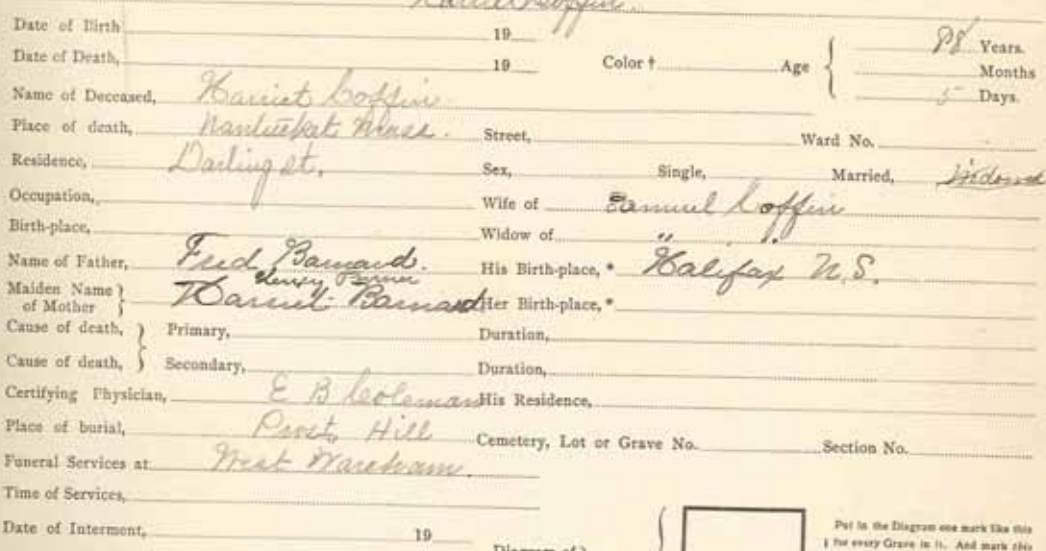 Harriet Coffin.
Date of Birth 19
Date of Death, 19 Color † Age { 88 Years.
Months
5 Days.
Name of Deceased, Harriet Coffin
Place of death, Nantucket Mass. Street, Ward No.
Residence, Darling st, Sex, Single, Married, Widowed
Occupation, Wife of Samuel Coffin
Birth-place, Widow of " "
Name of Father, Fred Barnard. His Birth-place, * Halifax N.S.
Maiden Name } of Mother Harriet Barnard Her Birth-place, *
Cause of death, } Primary, Duration,
Cause of death, } Secondary, Duration,
Certifying Physician, E B Coleman His Residence,
Place of burial, Prost Hill Cemetery, Lot or Grave No. Section No.
Funeral Services at West Wareham.
Time of Services,
Date of Interment, 19
Diagram of }
Put in the Diagram one mark like this
for every Grave in it. And mark this